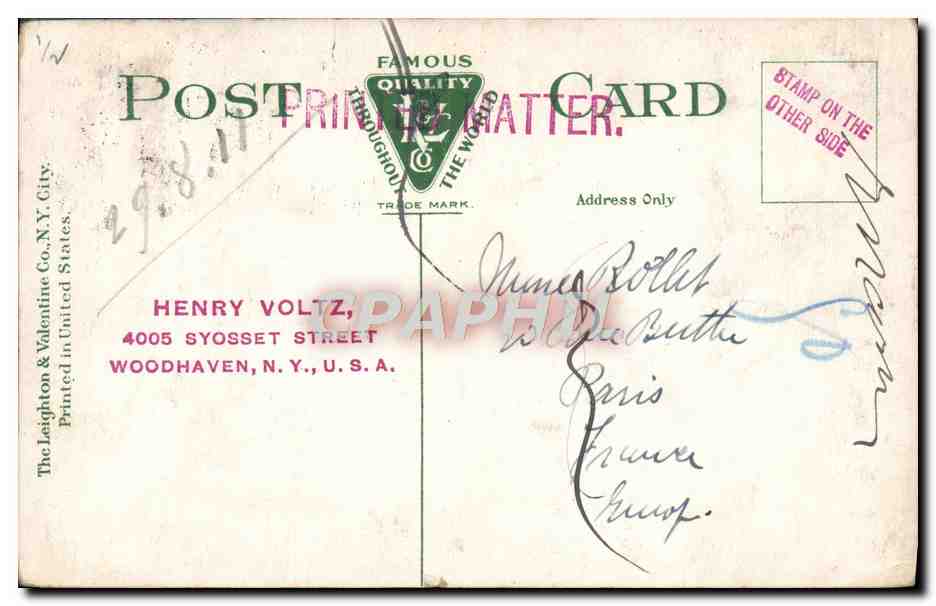 FAMOUS
QUALITY
THROUGHOUT THE WORLD
L&V Co
TRADE MARK.
POST CARD
PRINTED MATTER.
STAMP ON THE
OTHER SIDE
Address Only
29.8.11
The Leighton & Valentine Co., N.Y. City.
Printed in United States.
HENRY VOLTZ,
4005 SYOSSET STREET
WOODHAVEN, N. Y., U. S. A.
Bollet
Paris
France
Europ.
CPAPHIL